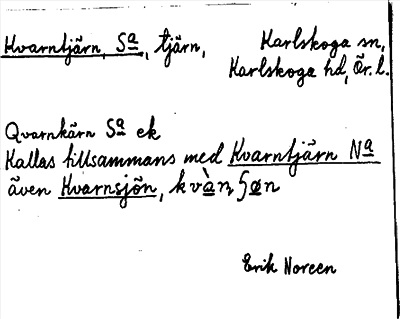 Kvarntjärn, Sa, tjärn, Karlskoga sn,
Karlskoga hd, Ör. l.
Qvarnkärn Sa ek
Kallas tillsammans med Kvarntjärn Na
även Kvarnsjön,
Erik Noreen